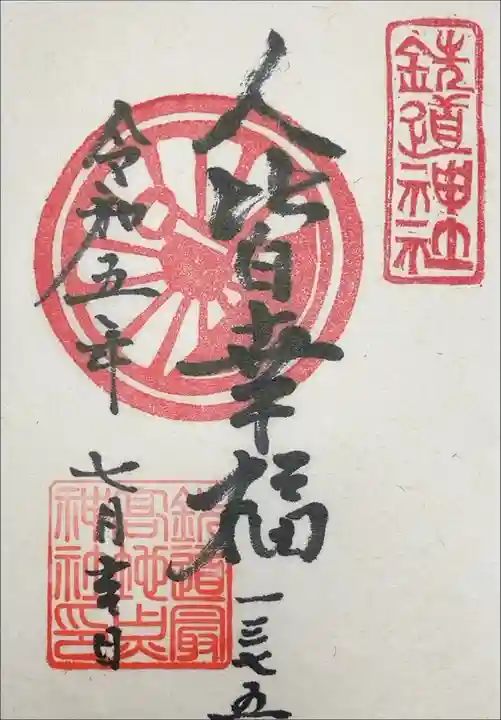 鉄道神社
人皆幸福
一三七五
令和五年
七月吉日
鉄道最
高地点
神社印